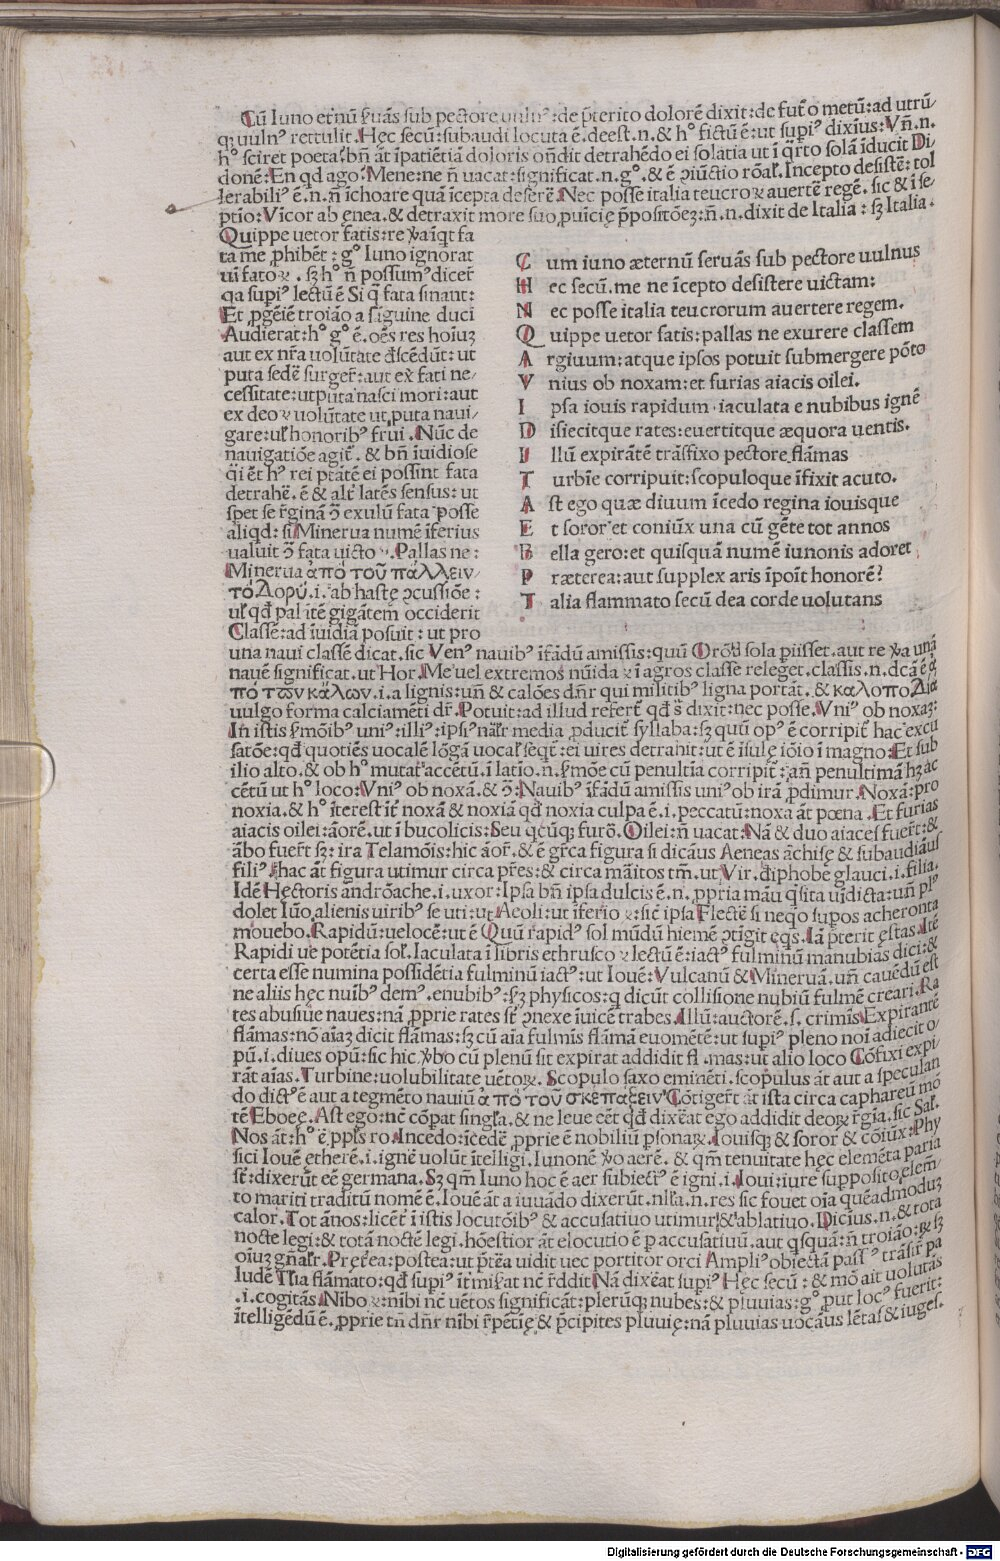 Cū Iuno etnū ẜuās sub pectore uulnꝰ:de p̄terito dolorē dixit:de fut̄o metū:ad utrū/
q; uulnꝰ rettulit.Hęc secū:subaudi locuta ē.deest.n.& h° fictū ē:ut supiꝰ diximus:Vn̄.n.
h° sciret poeta:bn̄ āt īpatiētiā doloris on̄dit detrahēdo ei solatia ut ī q̄rto solā īducit Di
donē:En qd ago?Mene:ne n̄ uacat:significat.n.g°.& ē ↄiūctio rōal̄.Incepto desistē:tol
lerabiliꝰ ē.n.n̄ īchoare quā īcepta deserē.Nec posse italia teucroꝝ auertē regē.sic & ī se/
ptio:Vicor ab ęnea.& detraxit more suo ꝓuicię p̄positōeʒ:n̄.n.dixit de Italia:sʒ Italia.
Quippe uetor fatis:re ꝟa īqt fa
ta me ꝓhibēt:g° Iuno ignorat
uī fatoꝝ.sʒ h° n̄ possumꝰ dicer̄
qa supiꝰ lectū ē Si q̄ fata sinant:
Et ꝓgēiē troiāo a sāguine duci
Audierat:h° g° ē.oēs res hoīuʒ
aut ex nr̄a uolūtate d̄scēdūt:ut
puta sedē surger̄:aut ex fati ne/
cessitate:ut puta nasci mori:aut
ex deoꝝ uolūtate ut puta naui/
gare:ul̄ honoribꝰ frui.Nūc de
nauigatiōe agit̄.& bn̄ īuidiose
q̄i ēt hꝰ rei ptātē ei possint fata
detrahē.ē & alt̄ latēs sensus:ut
spet se r̄ginā ↄ̄ exulū fata posse
aliqd:si Minerua numē īferius
ualuit ↄ̄ fata uictoꝝ.Pallas ne:
Minerua ἀπὸ τοῦ πάλλειν/
τὸ Δορύ.i.ab hastę ↄcussiōe:
ul̄ qd pallātē gigātem occiderit
Classē:ad īuidiā posuit:ut pro
C um iuno æternū seruās sub pectore uulnus
H ec secū.me ne īcepto desistere uictam:
N ec posse italia teucrorum auertere regem.
Q uippe uetor fatis:pallas ne exurere classem
A rgiuum:atque ipsos potuit submergere pōto
V nius ob noxam:et furias aiacis oilei.
I psa iouis rapidum.iaculata e nubibus ignē
D isiecitque rates:euertitque æquora uentis.
I llū expirātē trāsfixo pectore flāmas
T urbīe corripuit:scopuloque īfixit acuto.
A st ego quæ diuum īcedo regina iouisque
E t soror et coniūx una cū gēte tot annos
B ella gero:et quisquā numē iunonis adoret
P ræterea:aut supplex aris īpoīt honorē?
T alia flammato secū dea corde uolutans
una naui classē dicat.sic Venꝰ nauibꝰ īfādū amissis:quū Orōtī sola ꝑiisset.aut re ꝟa unā
nauē significat.ut Hor.Me uel extremos nūida ꝝ ī agros classe releget.classis.n.dcā ē ἀ
πὸ τῶν κάλων.i.a lignis:un̄ & calōes dn̄r qui militibꝰ ligna portāt.& καλοποΔία
uulgo forma calciamēti dr̄.Potuit:ad illud refert̄ qd s̄ dixit:nec posse.Vniꝰ ob noxaʒ:
In istis ẜmōibꝰ uniꝰ:illiꝰ:ipsiꝰ nāl̄r media ꝓducit̄ syllaba:sʒ quū opꝰ ē corripit̄ hac excu
satōe:qd quotiēs uocalē lōgā uocal̄ seqt̄:ei uires detrahit:ut ē īsulę iōio ī magno:Et sub
ilio alto.& ob h° mutat̄ accētū.ī latio.n.ẜmōe cū penultīa corripit̄:an̄ penultimā hʒ ac
cētū ut h° loco:Vniꝰ ob noxā.& ↄ̄:Nauibꝰ īfādū amissis uniꝰ ob irā ꝓdimur.Noxā:pro
noxia.& h° īterest īt̄ noxā & noxiā qd noxia culpa ē.i.peccatū:noxa āt pœna.Et furias
aiacis oilei:āorē.ut ī bucolicis:Seu qcūq; furō.Oilei:n̄ uacat.Nā & duo aiaces fuer̄t:&
ābo fuer̄t sʒ:ira Telamōis:hic āor̄.& ē gr̄ca figura si dicāus Aeneas āchisę & subaudiāus
filiꝰ hac āt figura utimur circa pr̄es:& circa māitos tm̄.ut Vir.diphobe glauci.i.filia.
Idē Hectoris āndrōache.i.uxor:Ipsa bn̄ ipsa dulcis ē.n.ꝓpria māu q̄sita uīdicta:un̄ plꝰ
dolet Iūo alienis uiribꝰ se uti:ut Aeoli:ut īferio ꝝ:sic ipsa Flectē si neq̄o supos acheronta
mouebo.Rapidū:uelocē:ut ē Quū rapidꝰ sol mūdū hiemē ↄtigit eqs.Iā p̄terit ęstas.Itē
Rapidi ue potētia sol̄.Iaculata ī libris ethrusco ꝝ lectū ē:iactꝰ fulminū manubias dici:&
certa esse numina possidētia fulminū iactꝰ:ut Iouē:Vulcanū & Mineruā.un̄ cauēdū est
ne aliis hęc nuībꝰ demꝰ.enubibꝰ:sʒ physicos:q dicūt collisione nubiū fulmē creari.Ra
tes abusiue naues:nā ꝓprie rates st̄ ↄnexe īuicē trabes.Illū:auctorē.s.crimīs Expirantē
flāmas:nō aīaʒ dicit flāmas:sʒ cū aīa fulmīs flāmā euomētē:ut supiꝰ pleno noī adiecit o/
pū.i.diues opū:sic hic ꝟbo cū plenū sit expirat addidit flāmas:ut alio loco Cōfixi expi/
rāt aīas.Turbine:uolubilitate uētoꝝ.Scopulo saxo eminēti.scopulus āt aut a speculan
do dictꝰ ē aut a tegmēto nauiū ἀπὸ τοῦ σκεπάζειν Cōtiger̄t āt ista circa caphareū mō
tē Eboeę.Ast ego:nc̄ cōpat singl̄a.& ne leue eēt qd dixēat ego addidit deoꝝ r̄gīa.sic Sal̄.
Nos āt:h° ē ppl̄s ro.Incedo:īcedē ꝓprie ē nobiliū ꝑsonaꝝ.Iouisq; & soror & cōiūx:Phy
sici Iouē ętherē.i.ignē uolūt ītelligi.Iunonē ꝟo aerē.& qm̄ tenuitate hęc elemēta paria
st̄:dixerūt eē germana.Sʒ qm̄ Iuno hoc ē aer subiect̄ ē igni.i.Ioui:iure supposito elem̄/
to mariti traditū nomē ē.Iouē āt a iuuādo dixerūt.nl̄la.n.res sic fouet oīa quēadmoduʒ
calor.Tot ānos:licēt ī istis locutōibꝰ & accusatiuo utimur & ablatiuo.Dicimus.n.& tota
nocte legi:& totā noctē legi.hōestior āt elocutio ē ꝑ accusatiuū.aut qsquā:n̄ troiāo:ꝝ sʒ
oīuʒ gn̄al̄r.Pręterea:postea:ut p̄tēa uidit uec portitor orci Ampliꝰ obiectā passꝰ trāsir̄ pa
ludē Talia flāmato:qd supiꝰ īt̄misat nc̄ r̄ddit Nā dixēat supiꝰ Hęc secū:& mō ait uolutās
.i.cogitās.Nībo ꝝ:nībi nc̄ uētos significāt:plerūq; nubes:& pluuias:g° ꝓut locꝰ fuerit:
ītelligēdū ē.ꝓprie tn̄ dn̄r nībi r̄pētīę & p̄cipites pluuię:nā pluuias uocāus lētas & iuges.
Digitalisierung gefördert durch die Deutsche Forschungsgemeinschaft - DFG